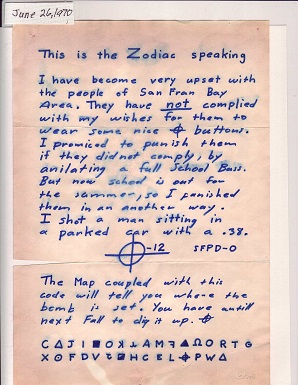 June 26, 1970
This is the Zodiac speaking
I have become very upset with
the people of San Fran Bay
Area. They have not complied
with my wishes for them to
wear some nice ⌖ buttons.
I promiced to punish them
if they did not comply, by
anilating a full School Buss.
But now school is out for
the summer, so I punished
them in an another way.
I shot a man sitting in
a parked car with a .38.
⌖-12 SFPD-0
The Map coupled with this
code will tell you where the
bomb is set. You have antill
next Fall to dig it up. ⌖
C Δ J I ■ O ʞ ⅄ A M ꟻ ▲ Ω O R T G
X ⊙ F D V ⊡ H C E L ⌖ P W Δ